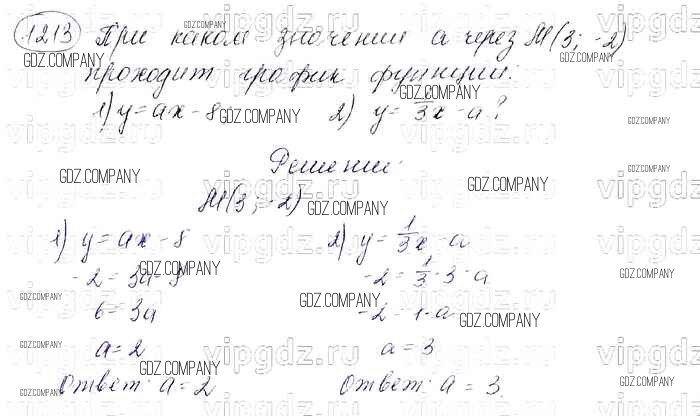 1213 При каком значении a через M(3; -2)
проходит график функции:
1) y = ax - 8 2) y = 1/3 x - a?
Решение:
M(3; -2)
1) y = ax - 8
-2 = 3a - 8
6 = 3a
a = 2
Ответ: a = 2
2) y = 1/3 x - a
-2 = 1/3 · 3 - a
-2 = 1 - a
a = 3
Ответ: a = 3.
GDZ.COMPANY
vipgdz.ru